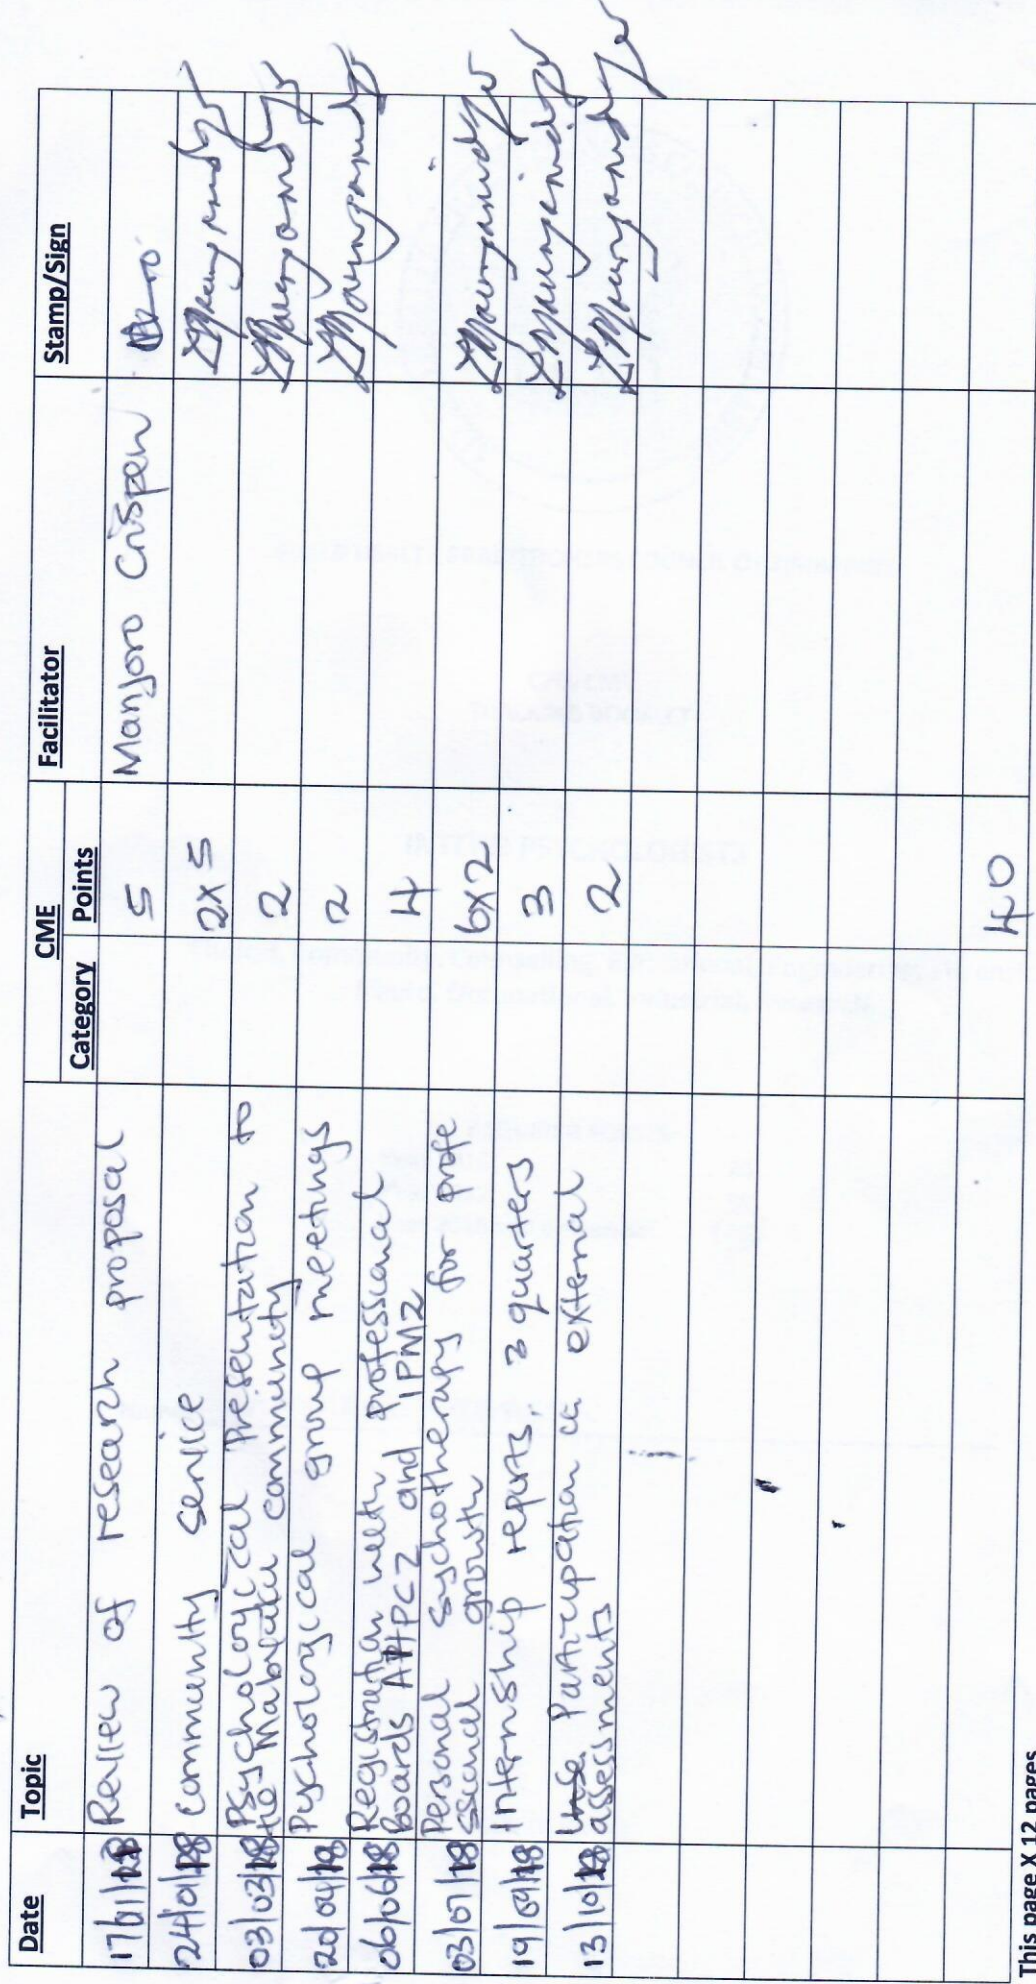 Date Topic CME Facilitator Stamp/Sign
Category Points
17/01/18 Review of research proposal 5 Manjoro Crispen
24/01/18 Community service 2x5
03/03/18 Psychological Presentation to
Mabvuku community 2
20/04/18 Psychological group meetings 2
06/06/18 Registration with professional
boards AHPCZ and IPMZ 4
03/07/18 Personal psychotherapy for profe
ssional growth 6x2
19/09/18 Internship reports. 3 quarters 3
13/10/18 Participation in external
assessments 2
40
This page X 12 pages